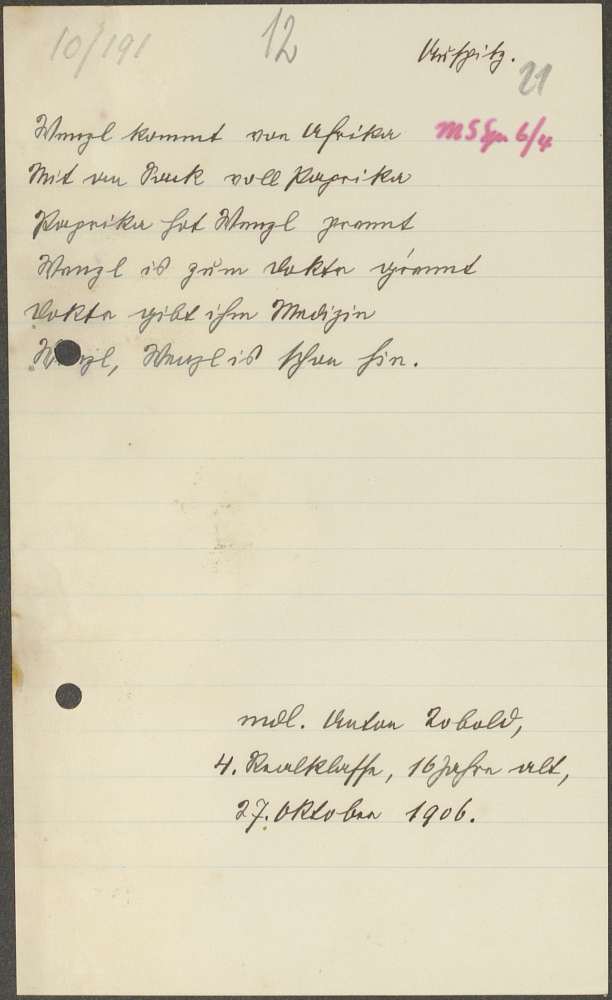 10/191
12
Auspitz.
21
Wenzl kommt von Afrika
MS Spr 6/4
Mit an Sack voll Paprika
Paprika hot Wenzl prennt
Wenzl is zum Dokta grennt
Dokta gibt ihm Medizin
Wenzl, Wenzl is schon hin.
mdl. Anton Zobold,
4. Realklasse, 16 Jahre alt,
27. Oktober 1906.